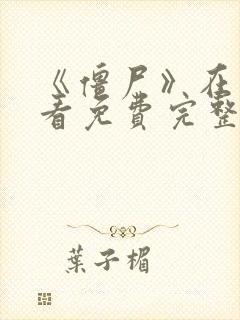 《僵尸》在
看免费完整
葉子楣